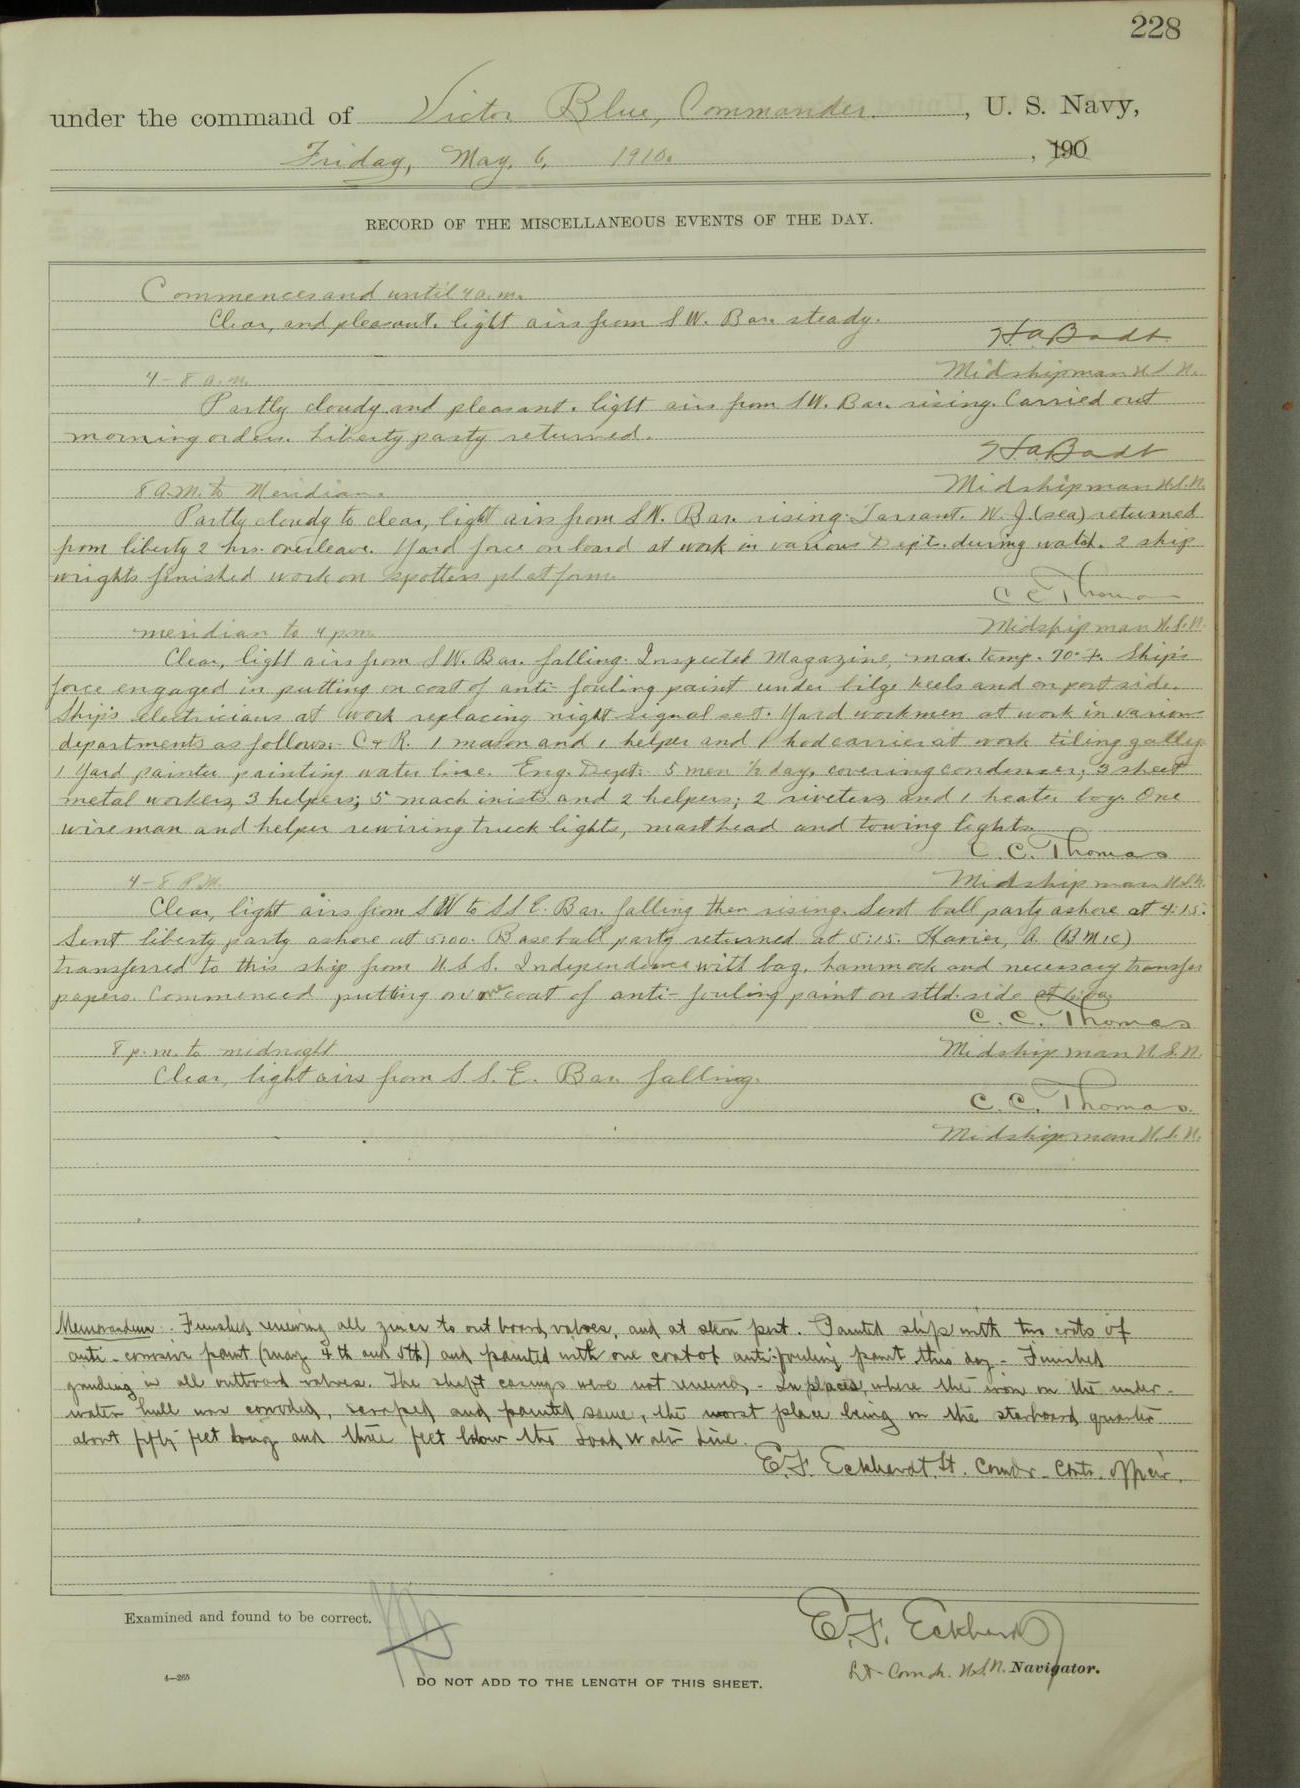 228
under the command of Victor Blue, Commander, U. S. Navy,
Friday, May, 6, 1910. , 190
RECORD OF THE MISCELLANEOUS EVENTS OF THE DAY.
Commences and until 4 a.m.
Clear, and pleasant. light airs from S W. Bar. steady.
H.A. Badt
Midshipman U.S.N.
4-8 a.m.
Partly cloudy and pleasant. light airs from S W. Bar. rising. Carried out
morning orders. Liberty party returned.
H.A. Badt
Midshipman U.S.N.
8 A.M. to Meridian.
Partly cloudy to clear, light airs from S W. Bar. rising. Tarrant. W. J. (sea) returned
from liberty 2 hrs. overleave. Yard force on board at work in various Dep't. during watch. 2 ship
wrights finished work on spotters platform.
C C Thomas
Midshipman U.S.N.
meridian to 4 p.m.
Clear, light airs from S W. Bar. falling. Inspected Magazine, max. temp. 70° F. Ship's
force engaged in putting on coat of anti-fouling paint under bilge keels and on port side.
Ship's electricians at work replacing night signal set. Yard workmen at work in various
departments as follows:- C & R. 1 mason and 1 helper and 1 hod carrier at work tiling galley
1 Yard painter painting water line. Eng. Dept: 5 men ½ day, covering condenser; 3 sheet
metal workers, 3 helpers; 5 machinists and 2 helpers; 2 riveters and 1 heater boy. One
wireman and helper rewiring truck lights, masthead and towing lights.
C. C. Thomas
Midshipman U.S.N.
4-8 P.M.
Clear, light airs from S W to S S E. Bar. falling then rising. Sent ball party ashore at 4:15.
Sent liberty party ashore at 5:00. Baseball party returned at 5:15. Havier, A. (B M 1c)
transferred to this ship from U.S.S. Independence with bag, hammock and necessary transfer
papers. Commenced putting on one coat of anti-fouling paint on stbd. side at
C. C. Thomas
Midshipman U.S.N.
8 p.m. to midnight
Clear, light airs from S. S. E. Bar. falling.
C. C. Thomas.
Midshipman U.S.N.
Memorandum. Finished renewing all zincs to outboard valves, and at stern post. Painted ship with two coats of
anti-corrosive paint (May 4th and 5th) and painted with one coat of anti-fouling paint this day - Finished
grinding in all outboard valves. The shaft casings were not removed. - In places, where the iron on the under-
water hull was corroded, scraped and painted same, the worst place being on the starboard quarter
about fifty feet long and three feet below the Load Water Line.
E.F. Eckhardt, Lt. Comdr.
Examined and found to be correct.
E. F. Eckhardt
Lt-Comdr. U.S.N. Navigator.
4—265
DO NOT ADD TO THE LENGTH OF THIS SHEET.